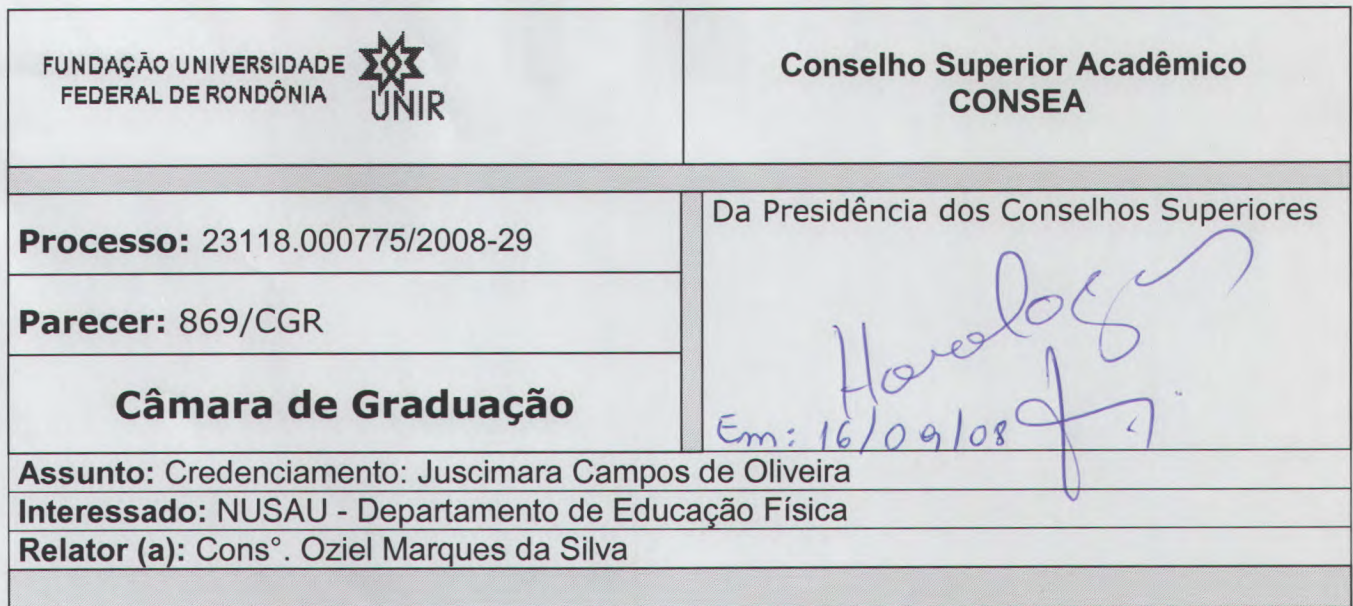 FUNDAÇÃO UNIVERSIDADE
FEDERAL DE RONDÔNIA
UNIR
Conselho Superior Acadêmico
CONSEA
Processo: 23118.000775/2008-29
Parecer: 869/CGR
Câmara de Graduação
Da Presidência dos Conselhos Superiores
Em: 16/09/08
Assunto: Credenciamento: Juscimara Campos de Oliveira
Interessado: NUSAU - Departamento de Educação Física
Relator (a): Cons°. Oziel Marques da Silva